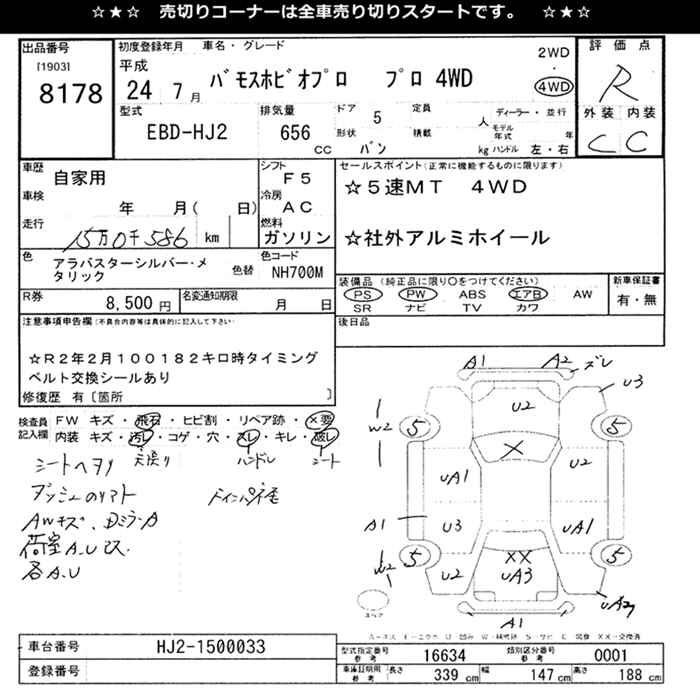 ☆★☆ 売切りコーナーは全車売り切りスタートです。 ☆★☆
出品番号
[1903]
8178
初度登録年月 車名・グレード
平成
24 7月
バモスホビオプロ プロ 4WD
2WD
・
4WD
評価点
R
外装 内装
C C
型式
EBD-HJ2
排気量
656
CC
ドア 5 定員 人
形状 バン 積載 kg
ディーラー・並行
モデル年式 年
ハンドル 左・右
車歴
自家用
車検
年 月( 日)
走行
15万0千586 km
シフト
F5
冷房
AC
燃料
ガソリン
セールスポイント(正常に機能するものに限ります)
☆5速MT 4WD
☆社外アルミホイール
色
アラバスターシルバー・メタリック
色替
色コード
NH700M
R券
8,500円
名変通知期限
月 日
装備品(純正品に限り○をつけてください)
PS PW ABS エアB AW
SR ナビ TV カワ
新車保証書
有・無
後日品
注意事項申告欄(不具合内容等は具体的に記入して下さい)
☆R2年2月100182キロ時タイミング
ベルト交換シールあり
修復歴 有〔箇所 〕
検査員記入欄
FW キズ・飛石・ヒビ割・リペア跡・×要
内装 キズ・汚レ・コゲ・穴・スレ・キレ・破レ
天張り ハンドル シート
シートヘタリ
AWキズ、DミラーA
荷室A.U
各A.U
A1 A2 ズレ
U3
U2
W2
5 5
X
UA1 U2
A1
U3 UA1
5 5
W2
XX
U2 UA3 U2
UA2
A1
スペア
車台番号
HJ2-1500033
登録番号
型式指定番号
参考
16634
類別区分番号
参考
0001
車庫証明用
参考
長さ 339 cm
幅 147 cm
高さ 188 cm